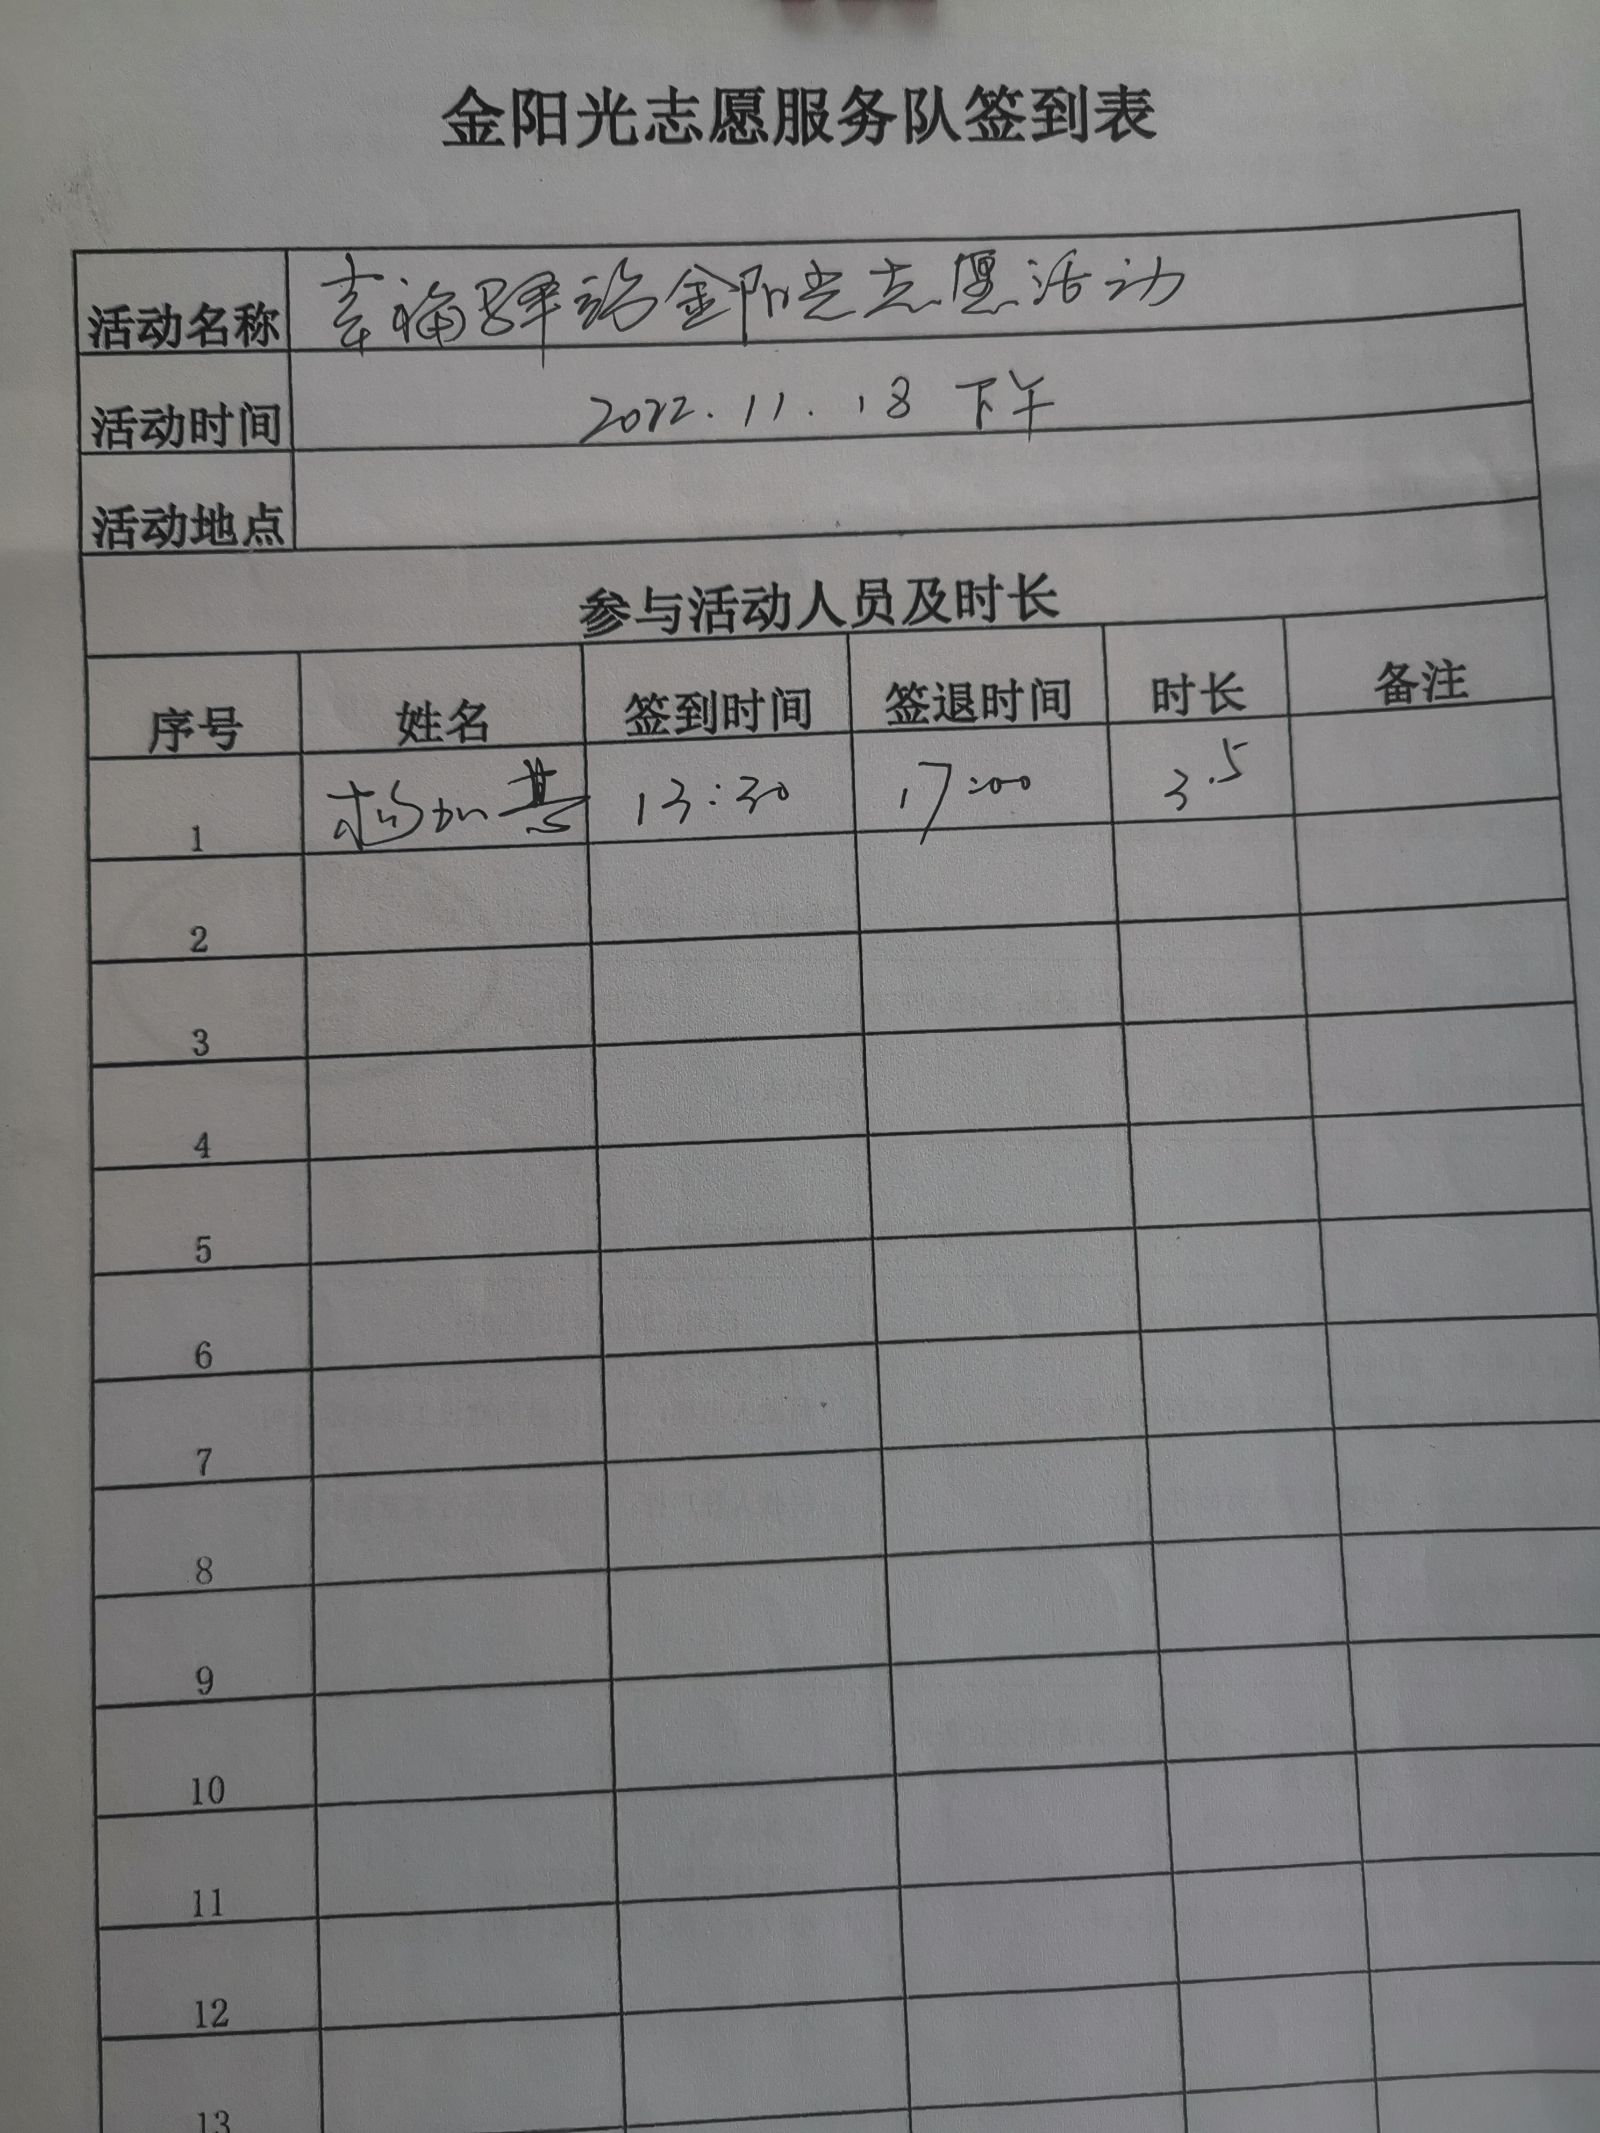 金阳光志愿服务队签到表
活动名称 幸福驿站金阳光志愿活动
活动时间 2022.11.18 下午
活动地点
参与活动人员及时长
序号 姓名 签到时间 签退时间 时长 备注
1 13:30 17:00 3.5
2
3
4
5
6
7
8
9
10
11
12
13